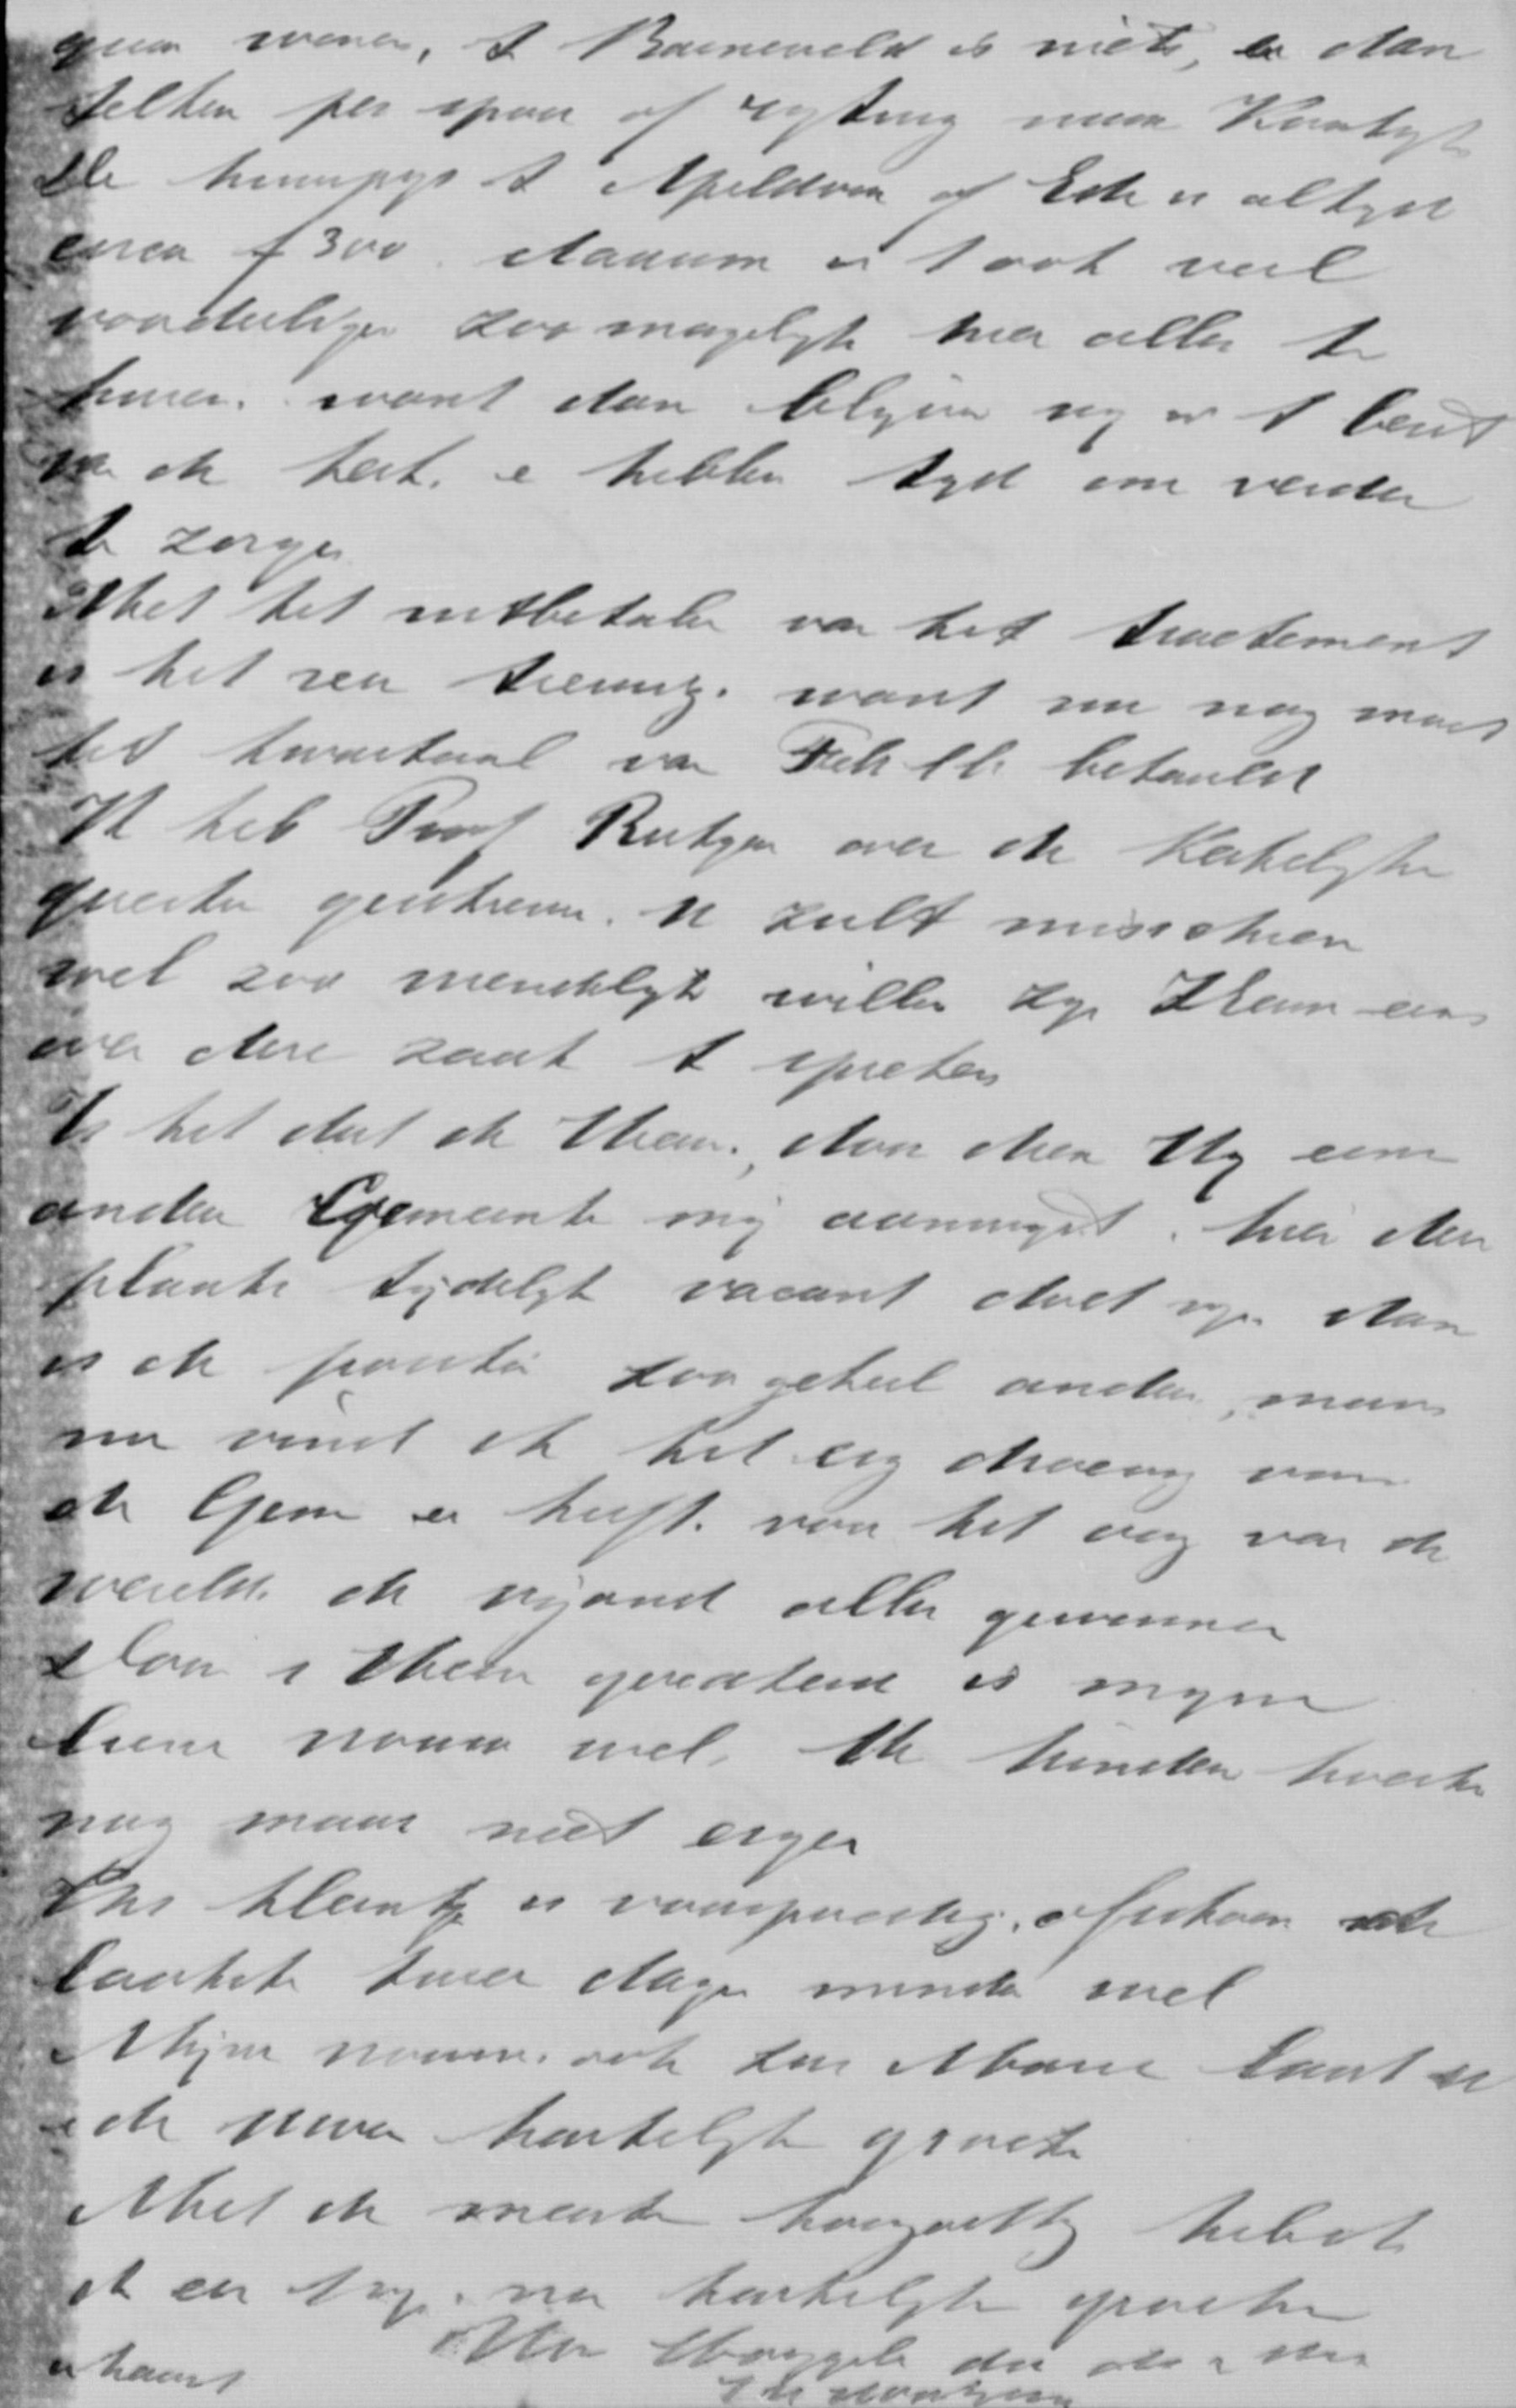 gaan wonen, t Barneveld is niets, en dan
telken per spoor of rijtuig naar Kootwijk
De huurprijs t Apeldoorn of Ede is altijd
circa f 300. daarom is t ook veel
voordeliger zoo mogelijk hier alles te
huren. want dan blijven wij in t bezit
van de kerk. e hebben tyd om verder
te zorgen
Met het uitbetalen van het tractement
is het zeer treurig. want nu nog moet
het kwartaal van Feb ll. betaald
Ik heb Prof Rutgers over de Kerkelijke
questie geschreven. U zult misschien
wel zoo vriendelijk willen zijn ZHEerw eens
over deze zaak t spreken
Is het dat de Heer, door dien Hij eene
andere Gemeente mij aanwijst, hier den
plaats tijdelijk vacant doet zijn dan
is de positie zoo geheel anders, maar
nu vind ik het erg droevig voor
de Gem en heeft voor het oog van de
wereld de vijand alles gewonnen
Door s Heeren goedheid is mijne
lieve vrouw wel, De kinderen hoesten
nog maar niet erger
Ons kleintje is voorspoedig, ofschoon ook
laatste twee dagen minder wel
Mijne vrouw. ook zus Marie laat U
e de Uwen hartelijk groeten
Met de meeste hoogachting heb ik
de eer t zijn na hartelijke groeten
Uw